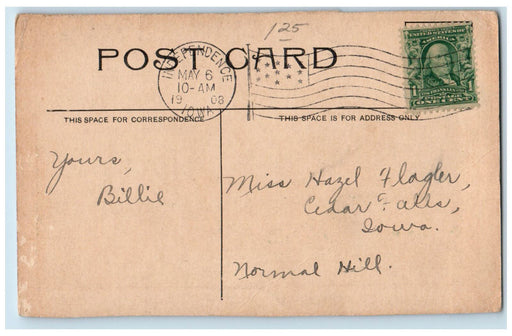 125
POST CARD
INDEPENDENCE
MAY 6
10-AM
1908
IOWA
THIS SPACE FOR CORRESPONDENCE
THIS SPACE IS FOR ADDRESS ONLY.
Yours,
Billie
Miss Hazel Flagler,
Cedar Falls,
Iowa.
Normal Hill.